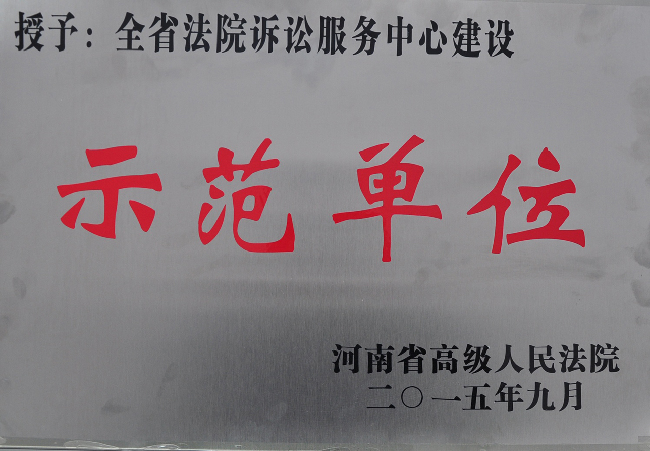 授予：全省法院诉讼服务中心建设
示范单位
河南省高级人民法院
二〇一五年九月